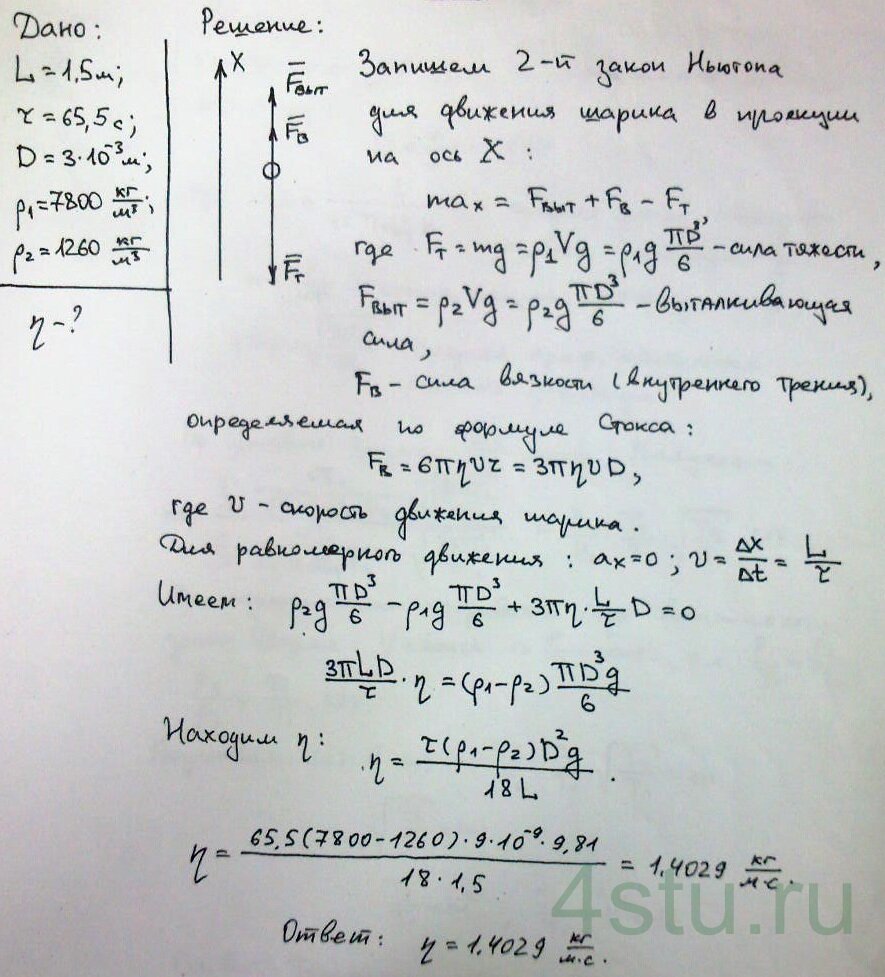 Дано:
L = 1,5 м;
τ = 65,5 с;
D = 3·10⁻³ м;
ρ₁ = 7800 кг/м³;
ρ₂ = 1260 кг/м³
η - ?
Решение:
X
F̅выт
F̅в
F̅т
Запишем 2-й закон Ньютона
для движения шарика в проекции
на ось X :
maₓ = Fвыт + Fв − Fт,
где Fт = mg = ρ₁Vg = ρ₁g πD³/6 - сила тяжести,
Fвыт = ρ₂Vg = ρ₂g πD³/6 - выталкивающая
сила,
Fв - сила вязкости (внутреннего трения),
определяемая по формуле Стокса:
Fв = 6πηυr = 3πηυD,
где υ - скорость движения шарика.
Для равномерного движения : aₓ=0 ; υ = Δx/Δt = L/τ
Имеем: ρ₂g πD³/6 − ρ₁g πD³/6 + 3πη·L/τ D = 0
3πLD/τ · η = (ρ₁−ρ₂) πD³g/6
Находим η:
η = τ(ρ₁−ρ₂)D²g/18L .
η = 65,5(7800−1260)·9·10⁻⁹·9,81/18·1,5 = 1,4029 кг/м·с.
4stu.ru
Ответ: η = 1,4029 кг/м·с.